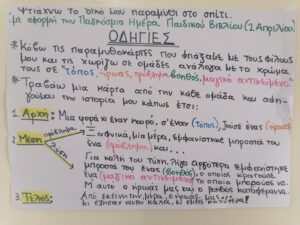 Φτιάχνω το δικό μου παραμύθι στο σπίτι.
με αφορμή την Παγκόσμια Ημέρα Παιδικού Βιβλίου (2 Απριλίου)
ΟΔΗΓΙΕΣ
* Κόβω τις παραμυθοκάρτες που φτιάξαμε με τους φίλους
μου και τις χωρίζω σε ομάδες ανάλογα με το χρώμα
τους σε "τόπος, ήρωας, πρόβλημα, βοηθός, μαγικό αντικείμενο"
* Τραβάω μία κάρτα από την κάθε ομάδα και αφη-
γούμαι την ιστορία μου κάπως έτσι:
1. Αρχή: Μια φορά κι έναν καιρό, σ'έναν (τόπος), ζούσε ένας (ήρωας)
2. Μέση πρόβλημα Ξαφνικά, μία μέρα, εμφανίστηκε μπροστά του
ένα (πρόβλημα) και...
λύση Για καλή του τύχη, λίγο αργότερα εμφανίστηκε
μπροστά του ένας (βοηθός), ο οποίος κρατούσε
ένα (μαγικό αντικείμενο) το οποίο μπορούσε να
Μ'αυτό ο ήρωάς μας και ο βοηθός κατάφεραν
3. Τέλος: Από εκείνη την μέρα, ο ήρωάς μας
κι έζησαν αυτοί καλά, κι εμείς καλύτερα!